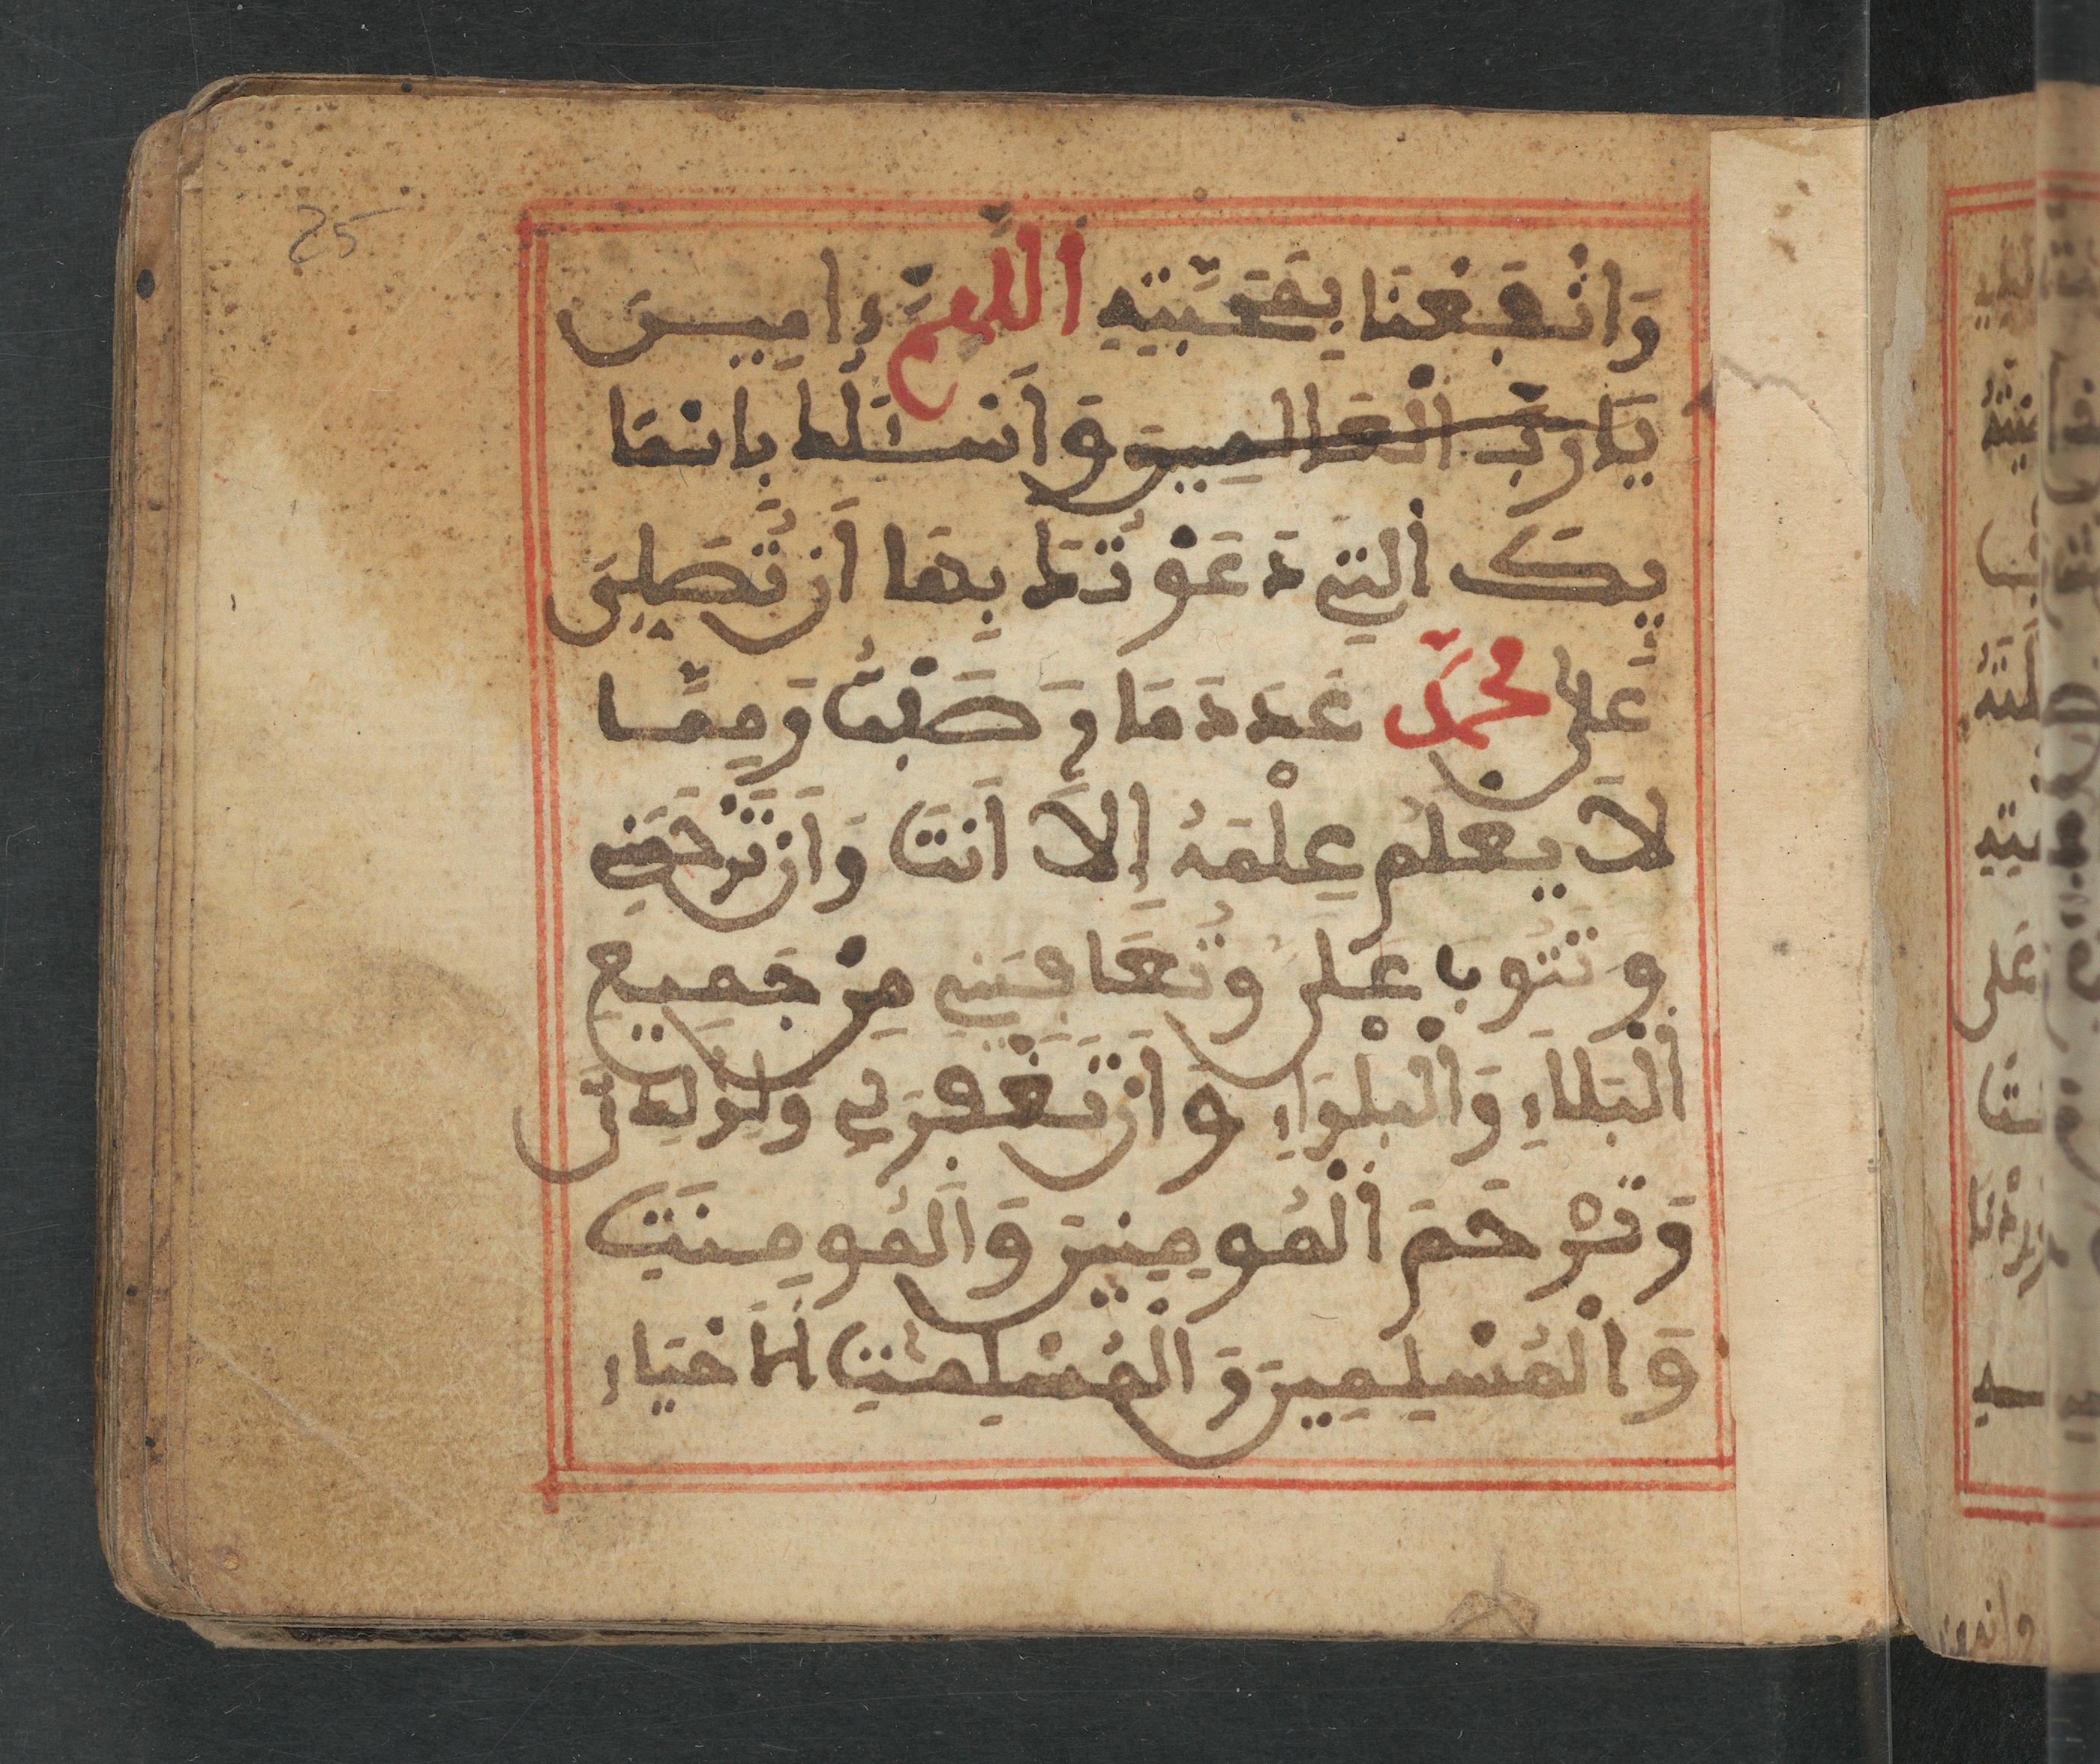 25
وَانْفَعْنَا بِمَحَبَّتِهِ اللَّهُمَّ ءَامِيـنَ
يَا رَبَّ الْعَالَمِينَ وَأَسْئَلُكَ بِأَسْمَا
ئِكَ الَّتِي دَعَوْتُكَ بِهَا أَن تُصَلِّيَ
عَلَى مُحَمَّدٍ عَدَدَ مَا وَصَفْتُ وَمِمَّا
لَا يَعْلَمُ عِلْمَهُ إِلَّا أَنتَ وَأَن تَرْحَمَنِي
وَتَتُوبَ عَلَيَّ وَتُعَافِيَنِي مِنْ جَمِيعِ
الْبَلَاءِ وَالْبَلْوَاءِ وَأَن تَغْفِرَ لِي وَلِوَالِدَيَّ
وَتَرْحَمَ الْمُومِنِينَ وَالْمُومِنَتِ
وَالْمُسْلِمِينَ وَالْمُسْلِمَتِ الْأَحْيَاءِ